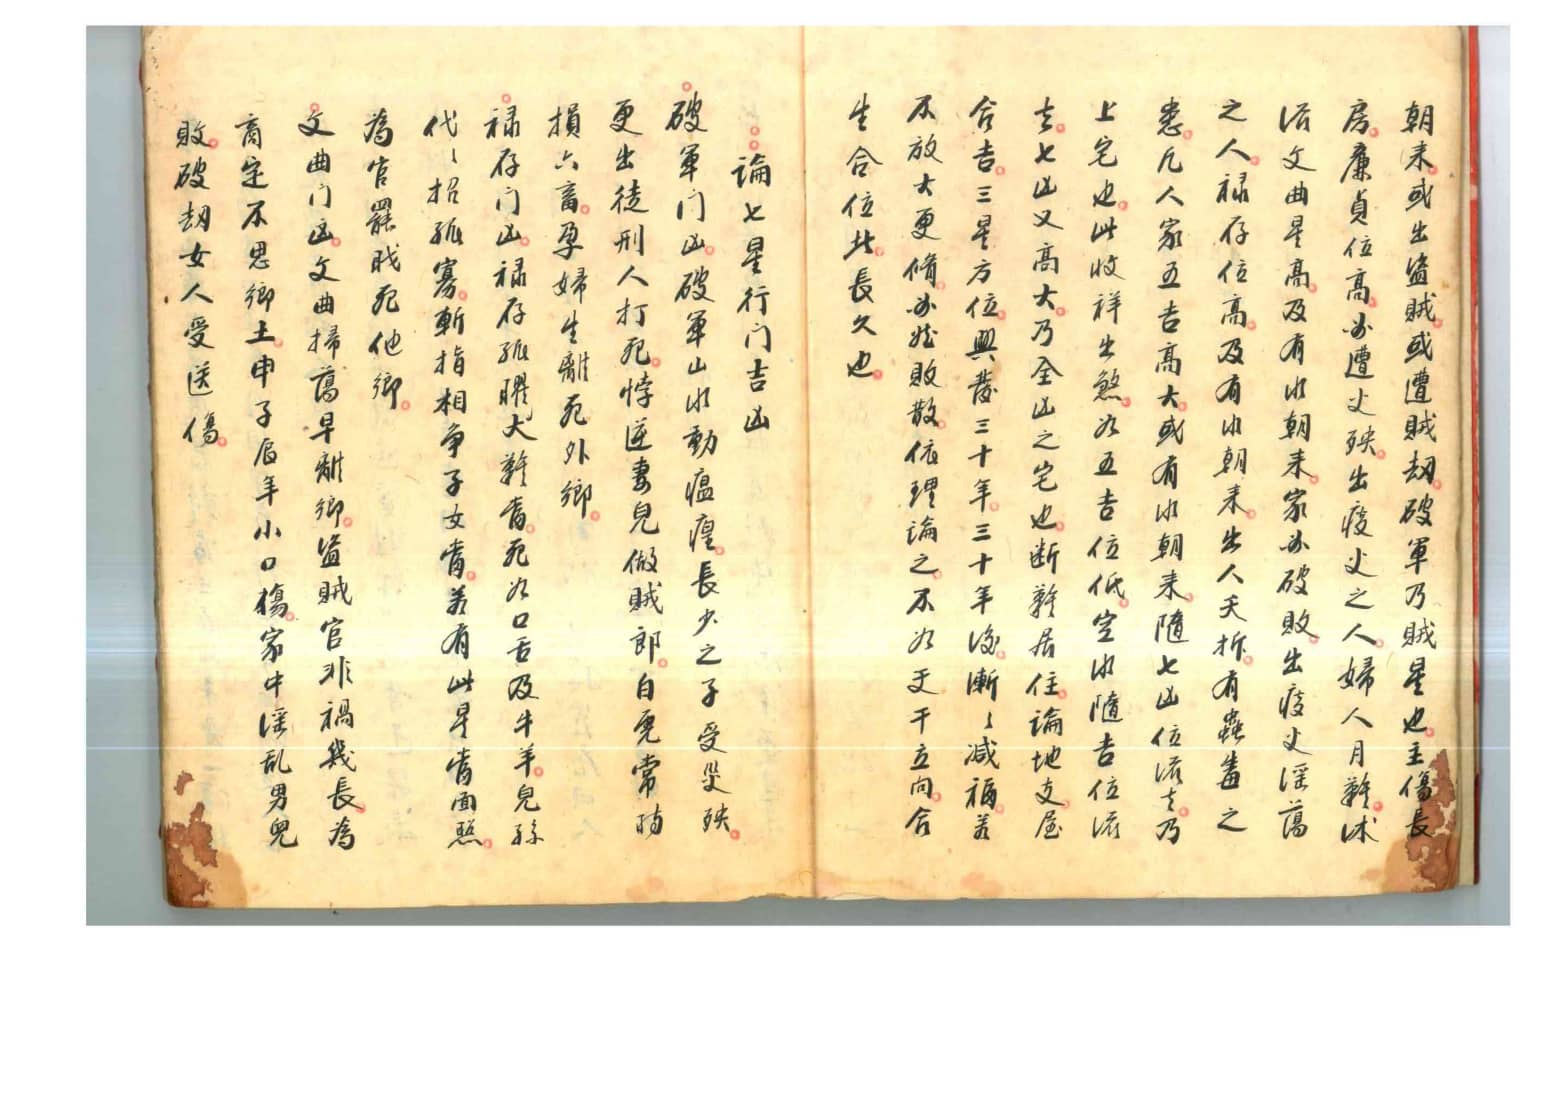 朝来。或出盜賊。或遭賊刼。破軍乃賊星也。主傷長
房。廉貞位高。必遭丈殃。出疫丈之人。婦人月難。沭
流文曲星高。及有水朝来。家必破敗。出疫丈淫蕩
之人。禄存位高。及有水朝来。出人夭折。有蟲毒之
患。凡人家五吉高大。或有水朝来。隨七凶位流去。乃
上宅也。此收祥出煞。如五吉位低。空水隨吉位流
去。七凶又高大。乃全凶之宅也。断難居住。論地支。屋
合吉。三星方位。興發三十年。三十年後。漸〻减福。若
不放大更脩。必然敗散。依理論之。不如天干立向。合
生合位此。長久也。
論七星行门吉凶
破軍门凶。破軍山水動瘟瘟。長少之子受災殃。
更出徒刑人打死。悖逆妻兒做賊郎。自兎常時
損六畜。孕婦生離死外鄉。
禄存门凶。禄存孤曜犬難當。死如口舌及牛羊。兒孫
代〻招孤寡。斬指相争子女當。若有此星當面照。
為官罷戝死他鄉。
文曲门凶。文曲掃蕩早離鄉。盜賊官非禍幾長。為
商定不思鄉土。申子辰年小口傷。家中淫乱男兒
敗。破刼女人受送傷。